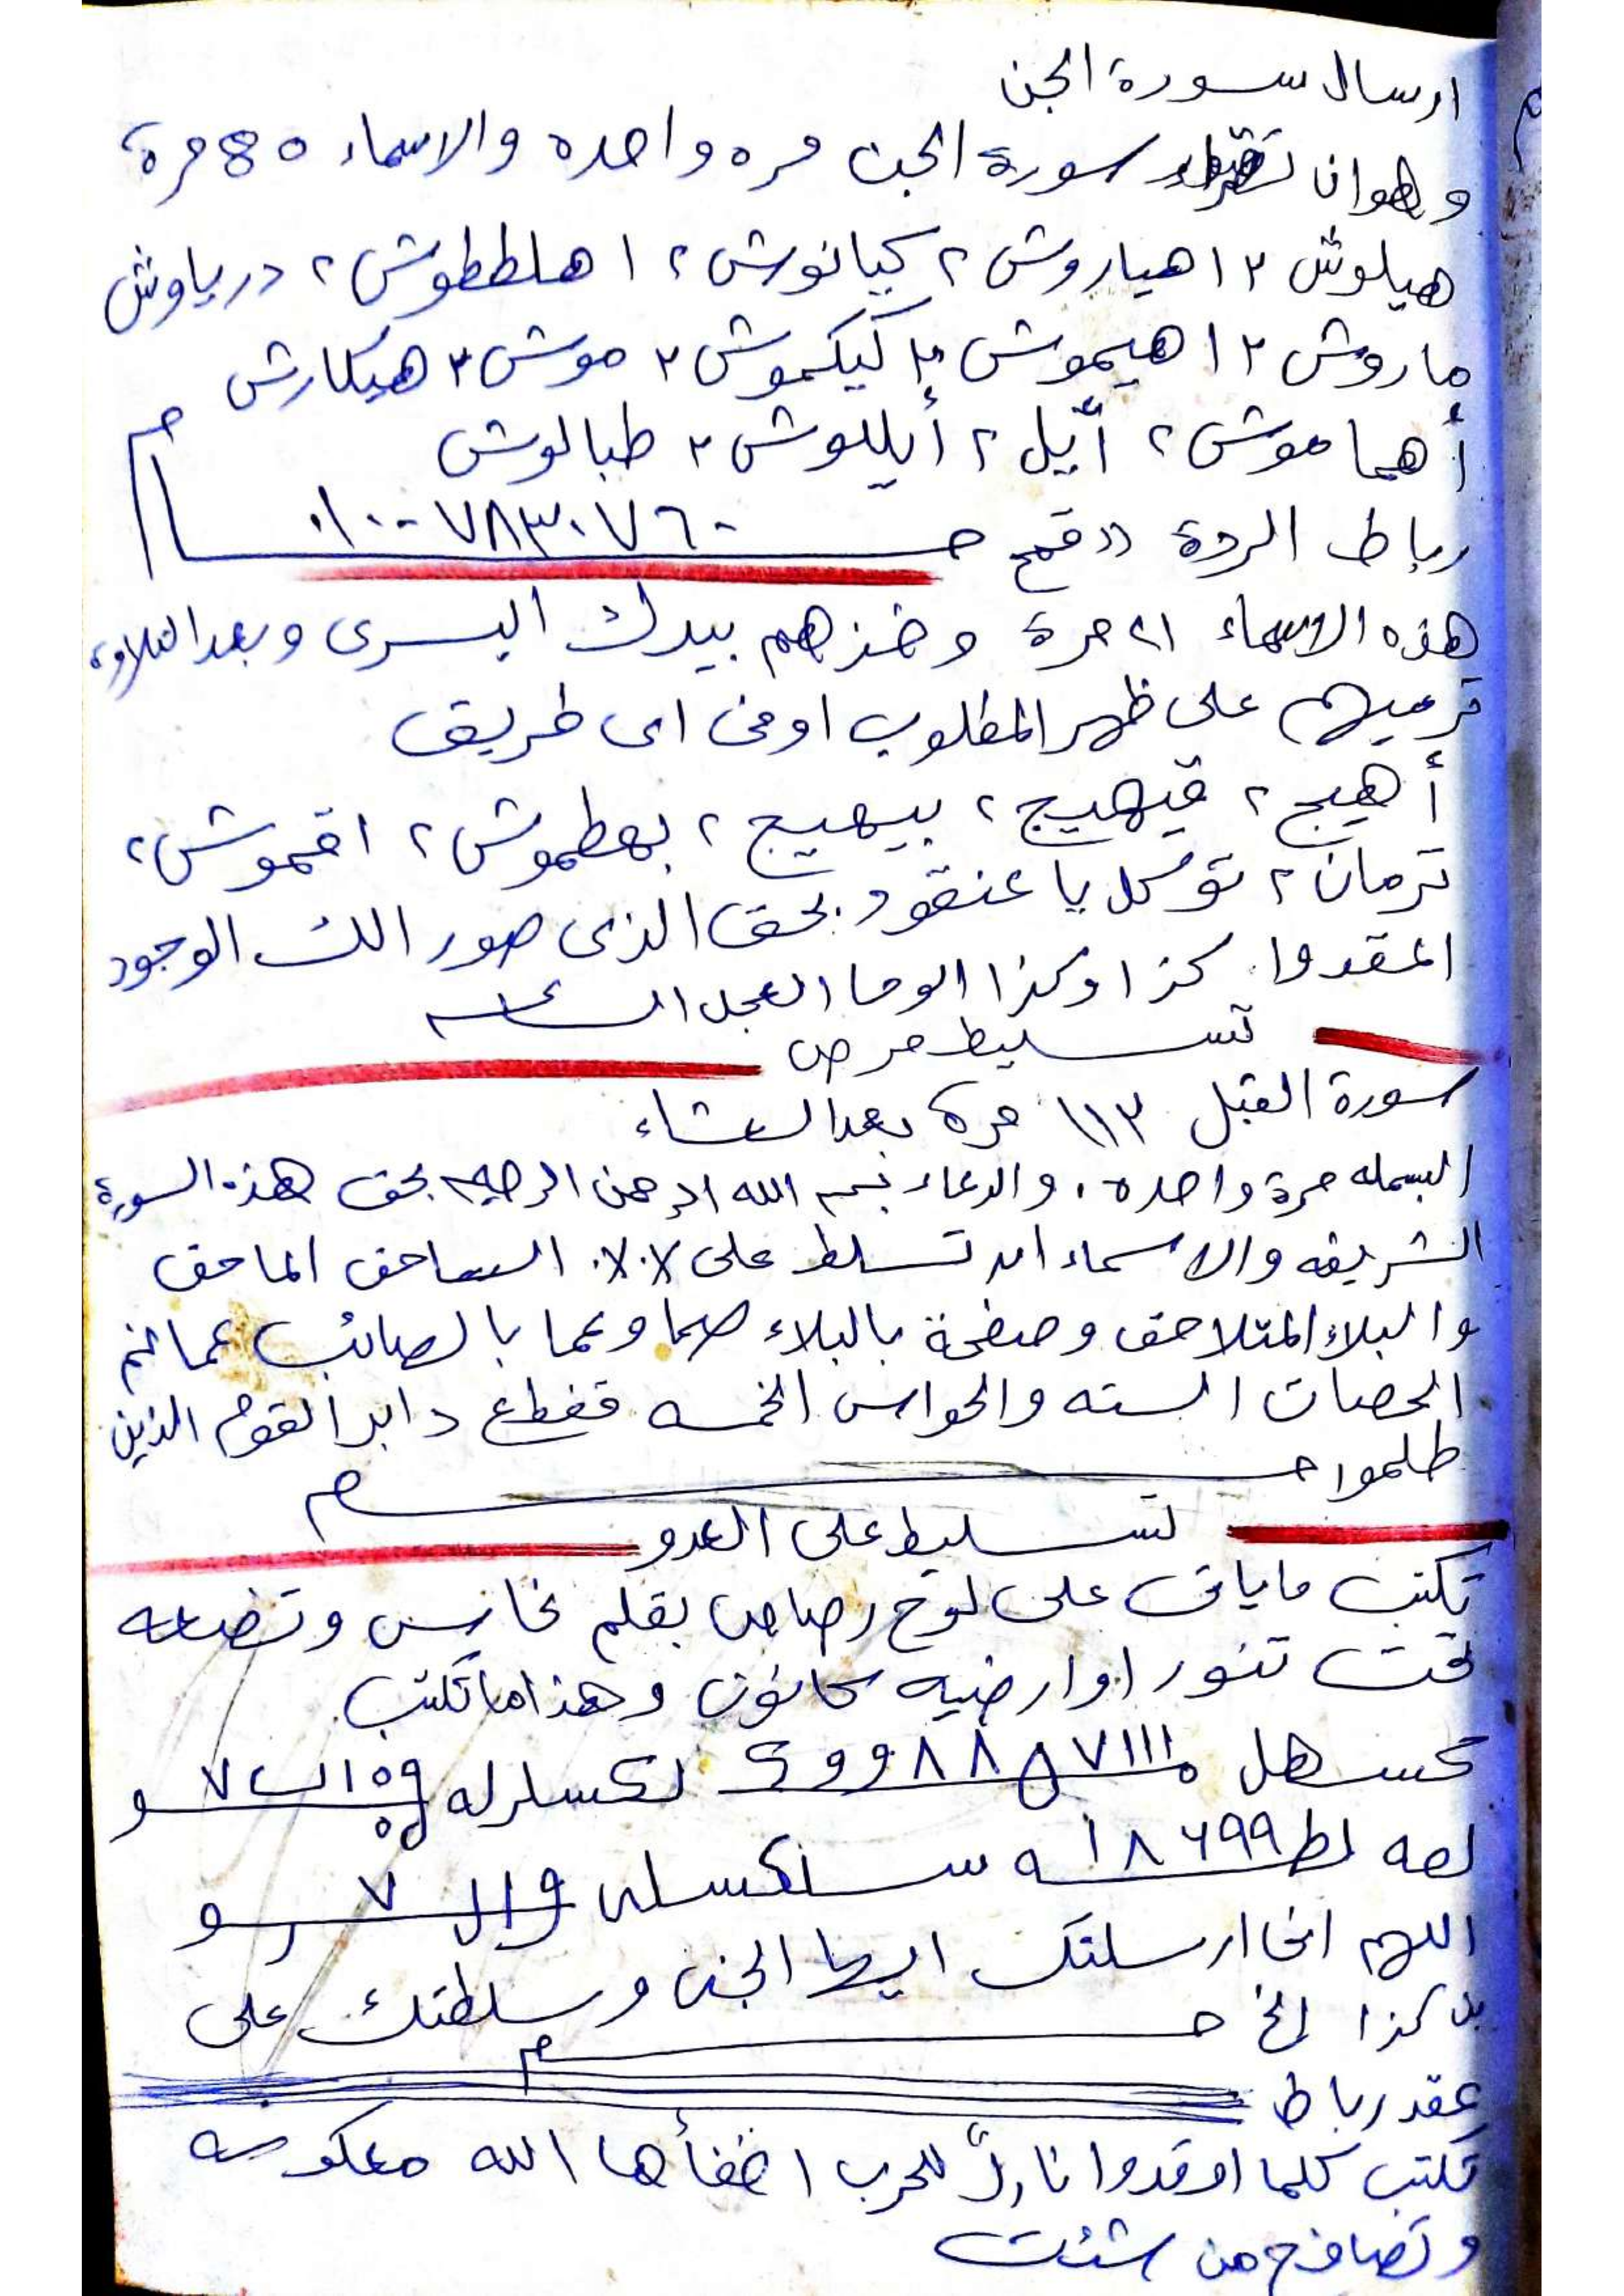 ارسال سورة الجن
وهو ان تقراء سورة الجن مره واحده والاسماء ٤٥ مرة
هيلوش ٢ اهياروش ٢ كيانوش ٢ اهلططوش ٢ درياوش
ماروش ٢ اهيموش ٢ كيكموش ٢ موش ٢ هيكارش
أهما موش ٢ أيل ٢ أيللوش ٢ طبالوش
رباط المرة ((قمح
٠١٠٠٧٨٣٠٧٦٠
هذه الاسماء ٢١ مرة وخذهم بيدك اليسرى وبعد التلاوة
ترميهم على ظهر المطلوب او فى اى طريق
أهيج ٢ قيهيج ٢ بيهيج ٢ بهطموش ٢ اقموش ٢
ترمان ٢ توكل يا عنقود بحق الذى صور الك الوجود
كذا وكذا الوحا العجل الساعه
تسليط مرض
سورة الفيل ١١٣ مرة بعد العشاء
البسمله مرة واحده . والدعاء بسم الله الرحمن الرحيم بحق هذه السورة
الشريفه والاسماء ان تسلط على الساحق الماحق
والبلاء المتلاحق وصفحة بالبلاء صما وعما بالصائب
الحصات السته والحواس الخمسه فقطع دابر القوم الذين
ظلموا
تسليط على العدو
تكتب ماياتى على لوح رصاص بقلم نحاس وتضعه
تحت تنور او ارضيه كانون وهذا ما تكتب
اللهم انى ارسلتك ايها الجنى وسلطتك على
كذا الخ
عقد رباط
تكتب كلما اوقدوا نارً للحرب اطفأها الله معكوسه
وتصافح من شئت